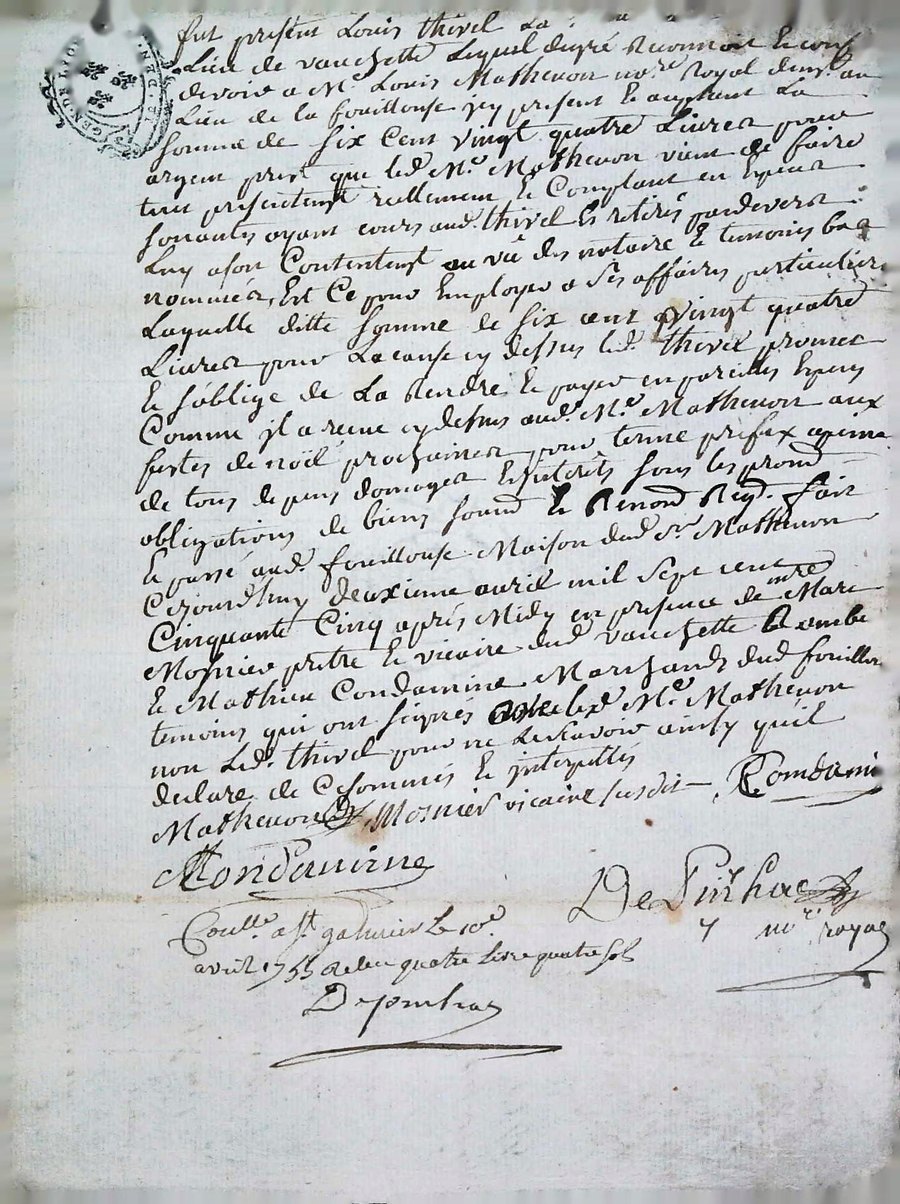 fut present Louis thivel La
Lieu de vauchette Lequel degré Reconnoit Le conf
devoir a Me. Louis Mathevon nore. Royal demt. au
Lieu de la fouillouse jcy present Le auptant La
somme de six Cent vingt quatre Livres pour
argent prest que led. Me. Mathevon vient de faire
tout presentemt. reellement Le Comptant en Especes
sonantes ayant cours aud. thivel Les retirés pardevers
Luy a son Contentemt. au vû des notaire Le temoins bas
nommées, Est Ce pour Employer a Ses affaires particulieres
Laquelle ditte somme de six cent vingt quatre
Livres pour La cause cy dessus led. thivel promet
Le s'oblige de La Rendre Le payer en pareilles Especes
Comme jl a receue cy dessus aud. Me. Mathevon aux
festes de noël prochaines pour terme prefix apeine
de tous depens domages Interets sous les promd
obligations de biens soumd Le Renond Req. fait
Le passé aud. fouillouse Maison dud. Sr. Mathevon
Cejourdhuy deuxieme avril mil sept cent
Cinquante Cinq aprés Midy en presence de mre Marc
Mosnier prêtre Le vicaire dud. vauchette
Le Mathieu Condamine Marchands dud. fouillouse
temoins qui ont signés avec led. Me. Mathevon
non Led. thivel pour ne Le scavoir ainsy quil
declare de Ce sommés Le jnterpellés
Mathevon Mosnier vicaire susdit Condamin
MCondamine
De Pinhac
nore. royal
Coullé. a St. galmier Le 10e.
avril 1755 Receu quatre Livre quatre sols
Depinhac
GEN DE LYON